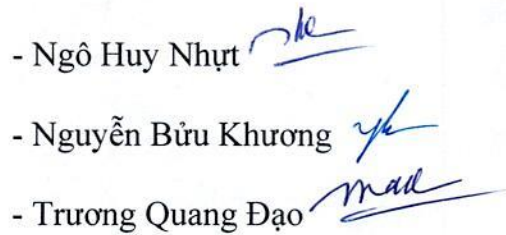 - Ngô Huy Nhựt
- Nguyễn Bửu Khương
- Trương Quang Đạo